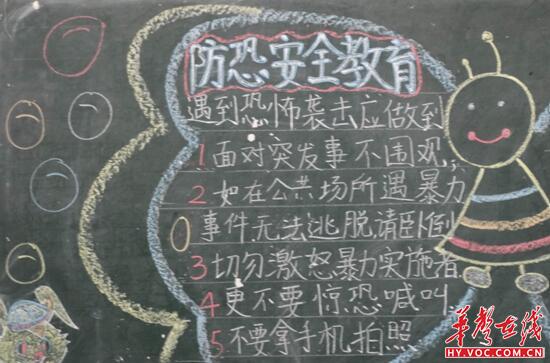 防恐安全教育
遇到恐怖袭击应做到
1面对突发事不围观,
2如在公共场所遇暴力
事件无法逃脱请卧倒
3切勿激怒暴力实施者
4更不要惊恐喊叫
5不要拿手机拍照
华声在线
HY.VOC.COM.CN